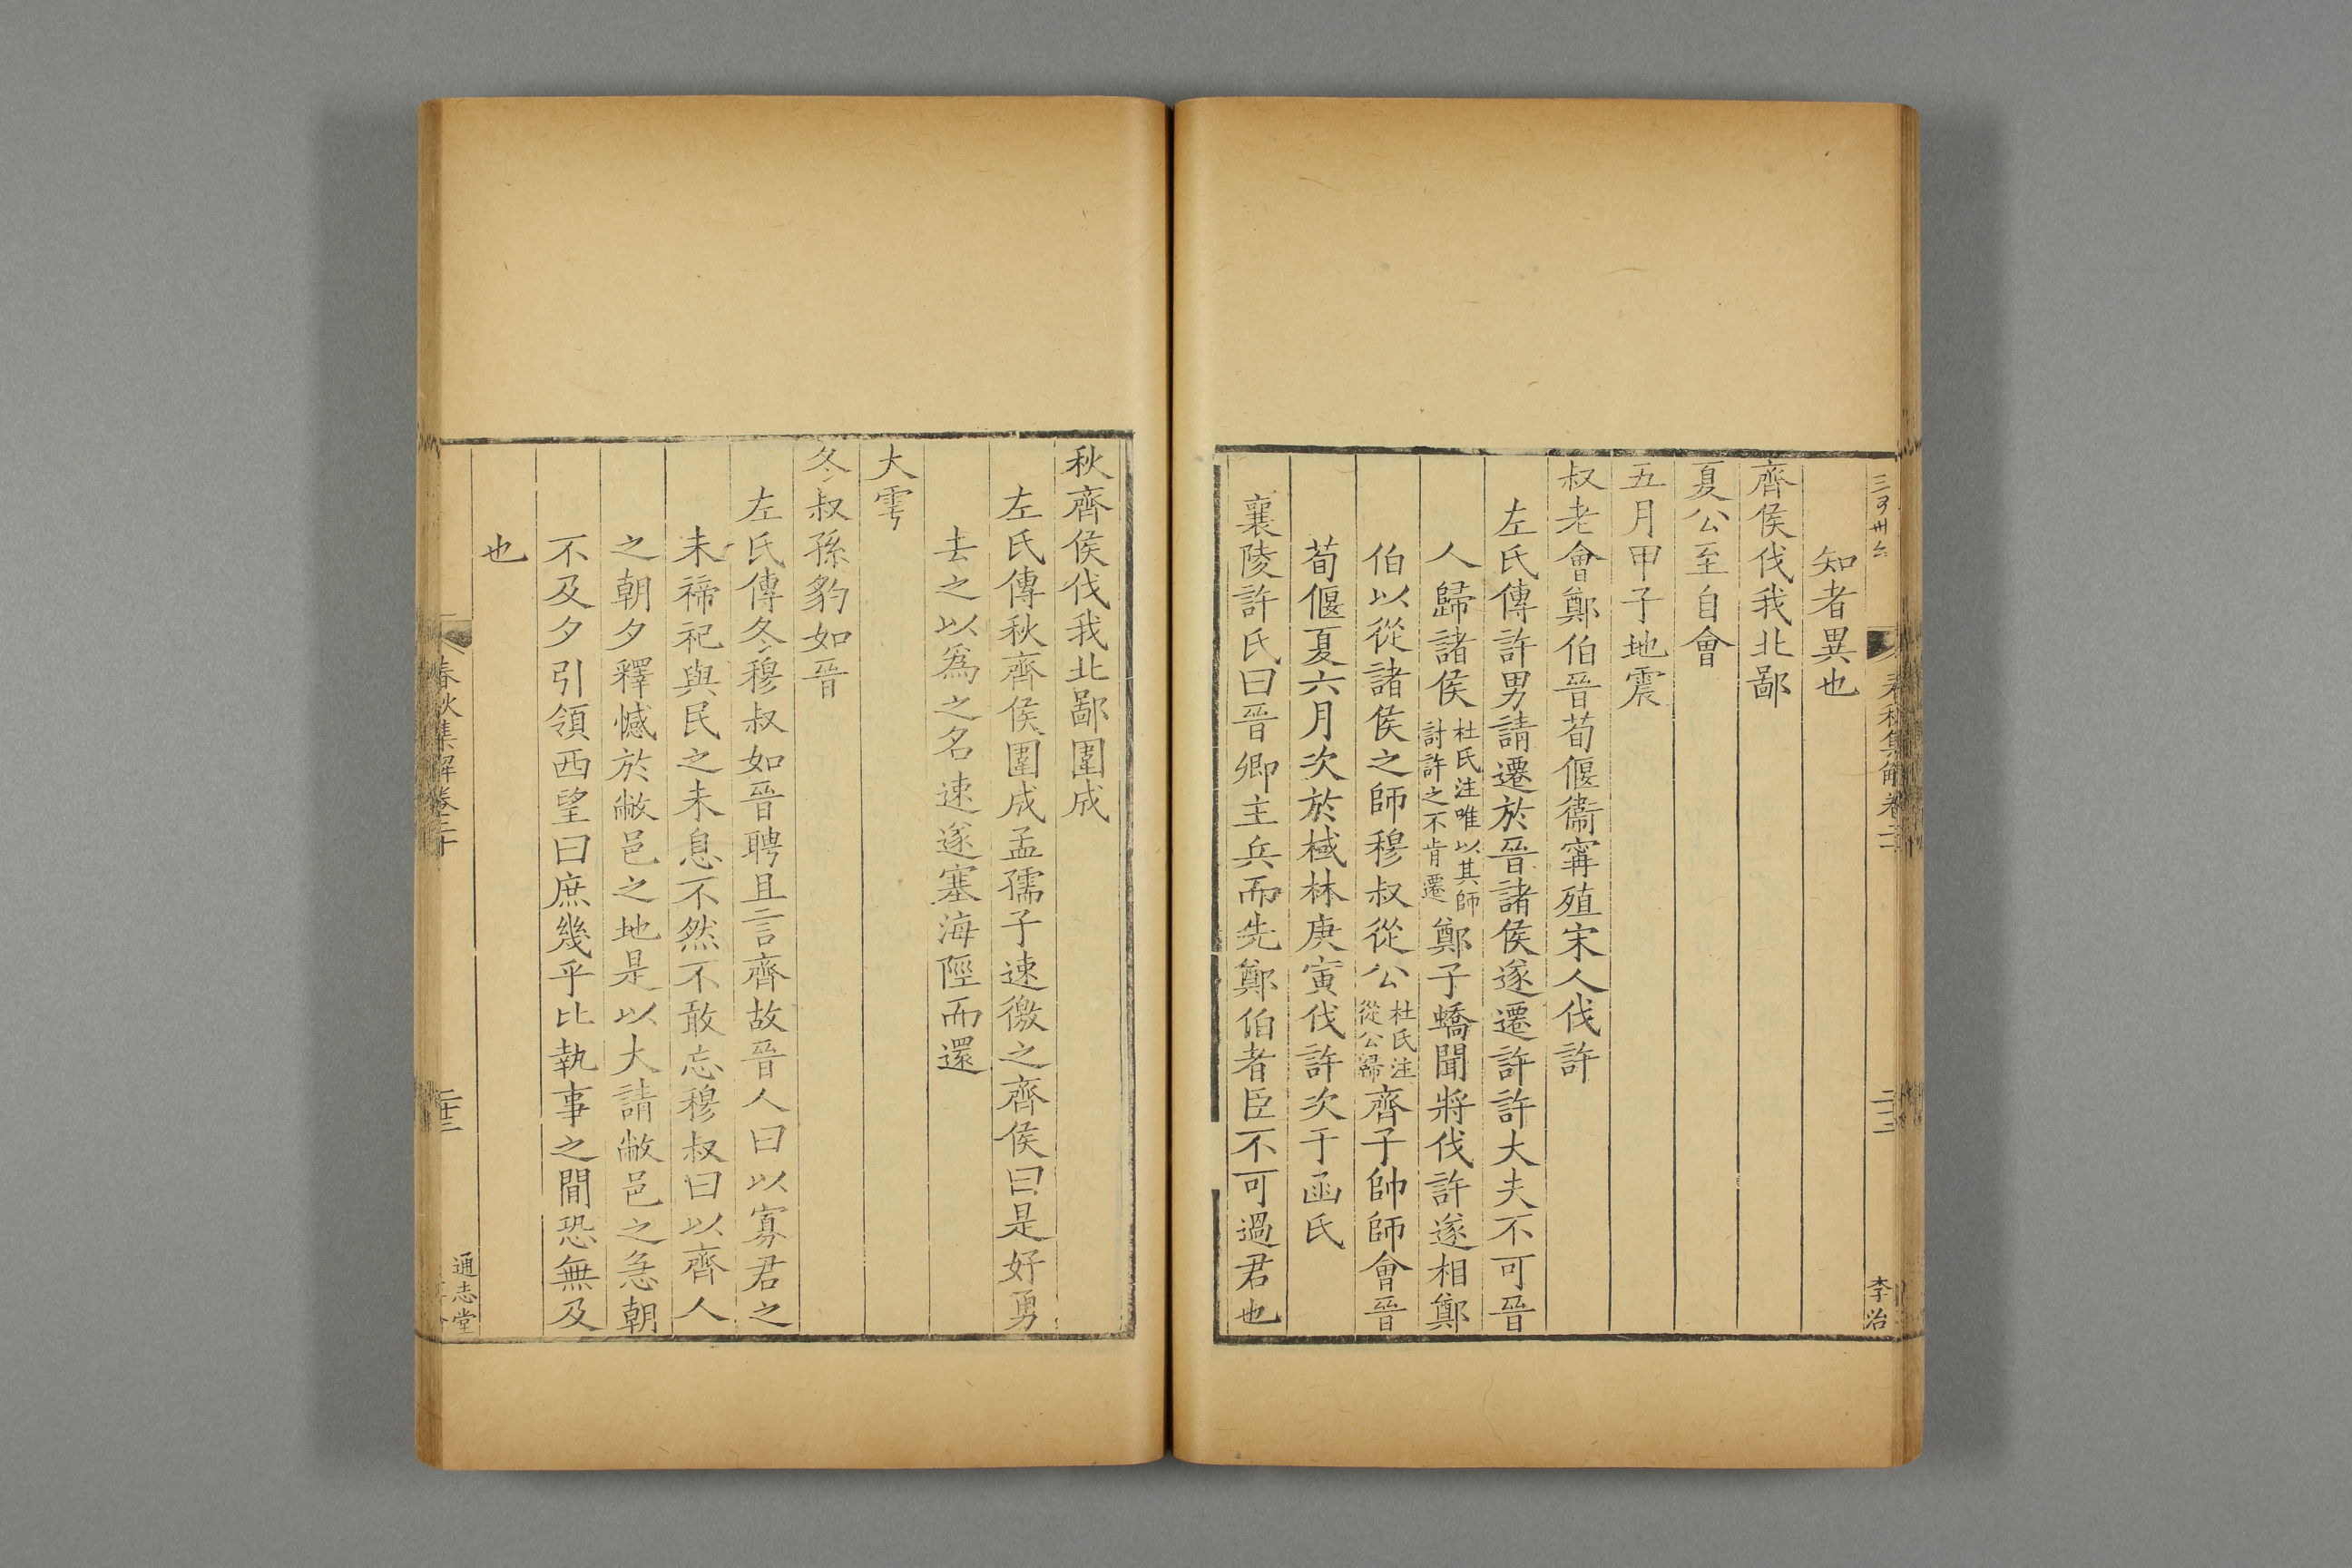 知者異也
齊侯伐我北鄙
夏公至自會
五月甲子地震
叔老會鄭伯晉荀偃衞寗殖宋人伐許
左氏傳許男請遷於晉諸侯遂遷許許大夫不可晉
人歸諸侯杜氏注唯以其師討許之不肯遷鄭子蟜聞將伐許遂相鄭
伯以從諸侯之師穆叔從公杜氏注從公歸齊子帥師會晉
荀偃夏六月次於棫林庚寅伐許次于函氏
襄陵許氏曰晉卿主兵而先鄭伯者臣不可過君也
李治
秋齊侯伐我北鄙圍成
左氏傳秋齊侯圍成孟孺子速徼之齊侯曰是好勇
去之以爲之名速遂塞海陘而還
大雩
冬叔孫豹如晉
左氏傳冬穆叔如晉聘且言齊故晉人曰以寡君之
未禘祀與民之未息不然不敢忘穆叔曰以齊人
之朝夕釋憾於敝邑之地是以大請敝邑之急朝
不及夕引領西望曰庶幾乎比執事之間恐無及
也
春秋集解卷二十
二十三
通志堂